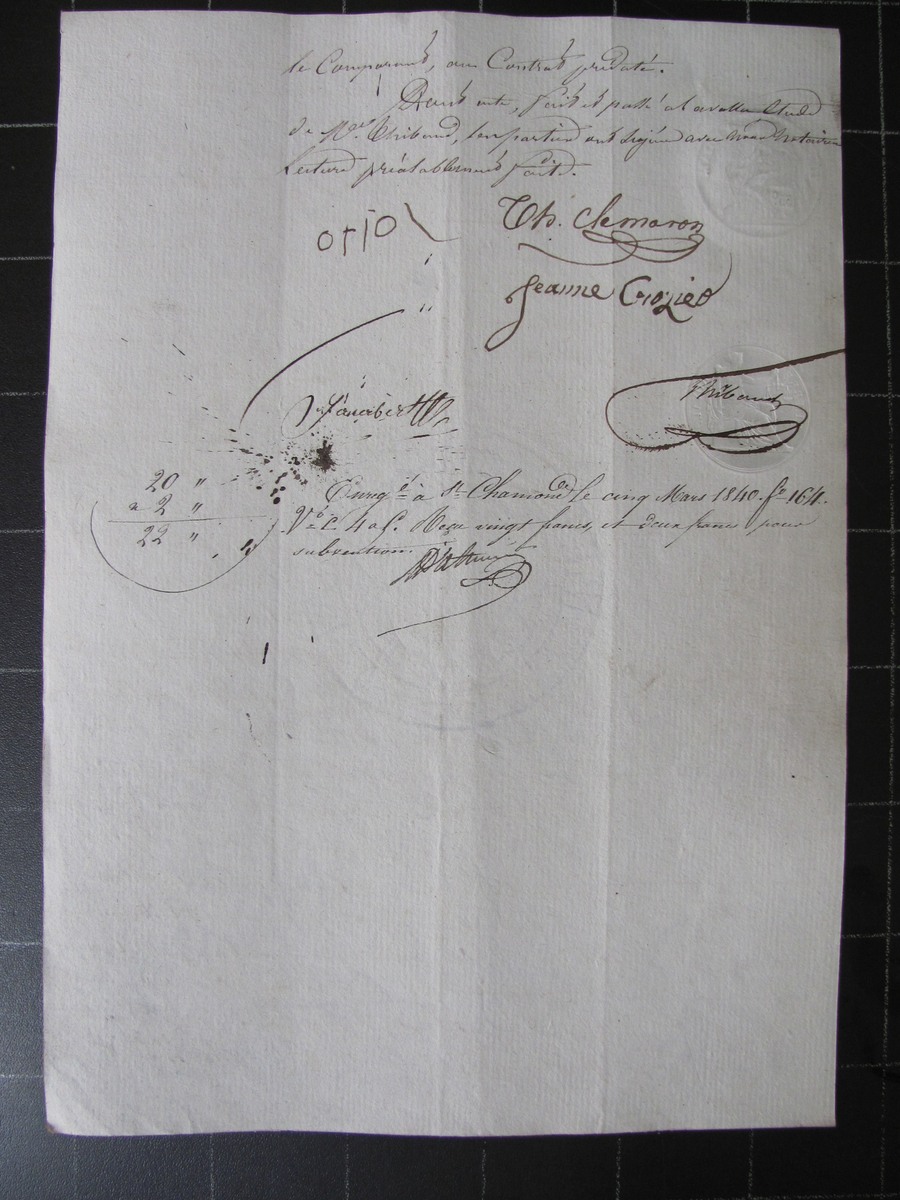 le Comparant, au Contrat prédaté.
Dont acte, fait et passé à la valla Etude
de Me Thibaud, les parties ont signé avec nous Notaires
Lecture préalablement faite.
oriol
Th. Clemaron
Jeanne Crozier
Thibaud
20 "
2 "
22 "
Enregé à St Chamond le cinq Mars 1840. fo 164.
Vo C. 4 a 6. Reçu vingt francs, et deux francs pour
subvention.